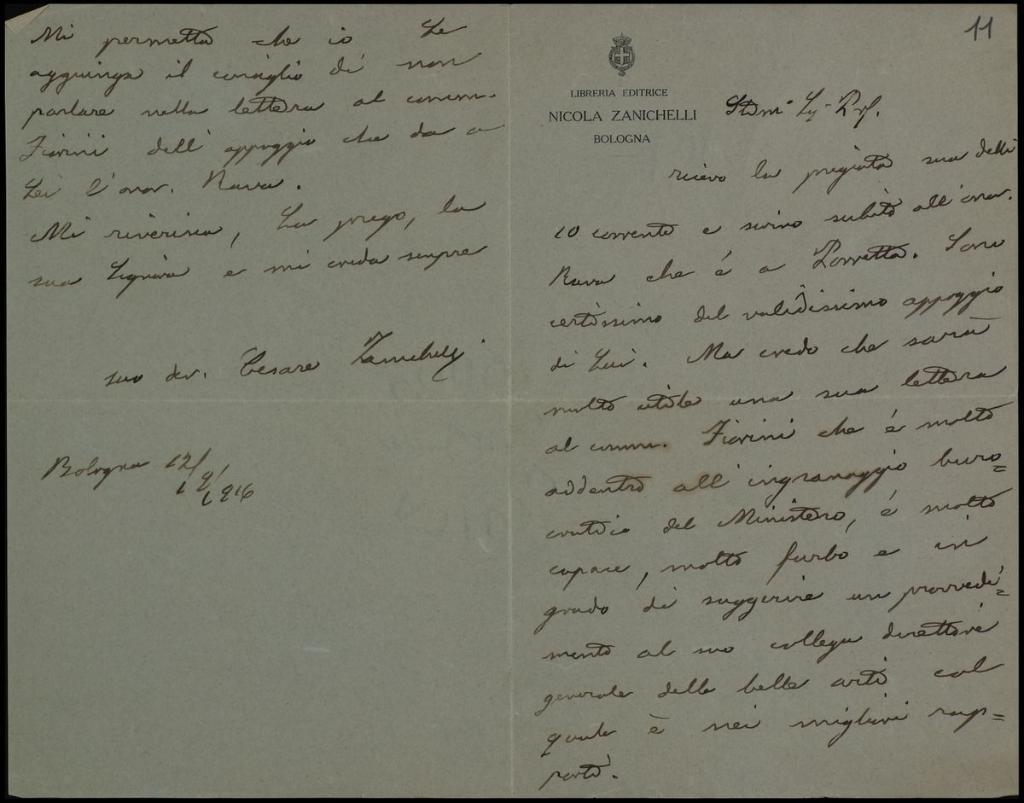 11
LIBRERIA EDITRICE
NICOLA ZANICHELLI
BOLOGNA
Stim.º Sig. Prof.
ricevo la pregiata sua delli
10 corrente e scrivo subito all'onor.
Rava che è a Porretta. Sono
certissimo del validissimo appoggio
di Lui. Ma credo che sarà
molto utile una sua lettera
al comm. Fiorini che è molto
addentro all'ingranaggio buro=
cratico del Ministero, è molto
capace, molto furbo e in
grado di suggerire un provvedi=
mento al suo collega direttore
generale delle belle arti col
quale è nei migliori rap=
porti.
Mi permetta che io Le
aggiunga il consiglio di non
parlare nella lettera al comm.
Fiorini dell'appoggio che da a
Lei l'onor. Rava.
Mi riverisca, La prego, la
sua Signora e mi creda sempre
suo dev. Cesare Zanichelli
Bologna 12/